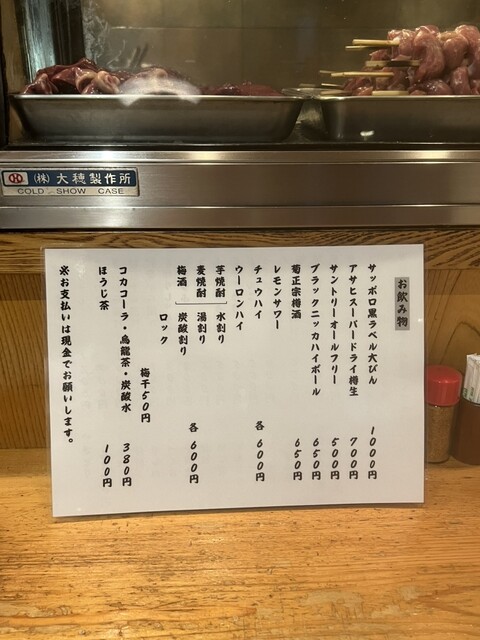 (株)大穂製作所
COLD SHOW CASE
お飲み物
サッポロ黒ラベル大びん 1000円
アサヒスーパードライ樽生 700円
サントリーオールフリー 500円
ブラックニッカハイボール 650円
菊正宗梅酒 650円
レモンサワー
チュウハイ 各600円
ウーロンハイ
芋焼酎 水割り
麦焼酎 湯割り 各600円
梅酒 炭酸割り
ロック
梅干50円
コカコーラ・烏龍茶・炭酸水 380円
ほうじ茶 100円
※お支払いは現金でお願いします。